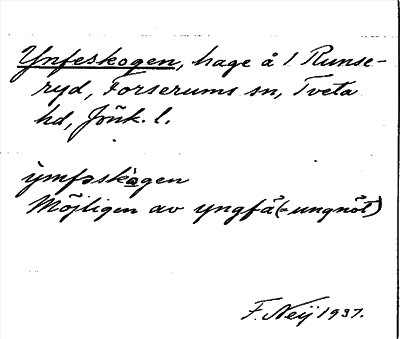 Ynfeskogen, hage å 1 Runse-
ryd, Forserums sn, Tveta
hd, Jönk. l.
ỳmfəskògen
Möjligen av yngfä (= ungnöt)
F. Neij 1937.